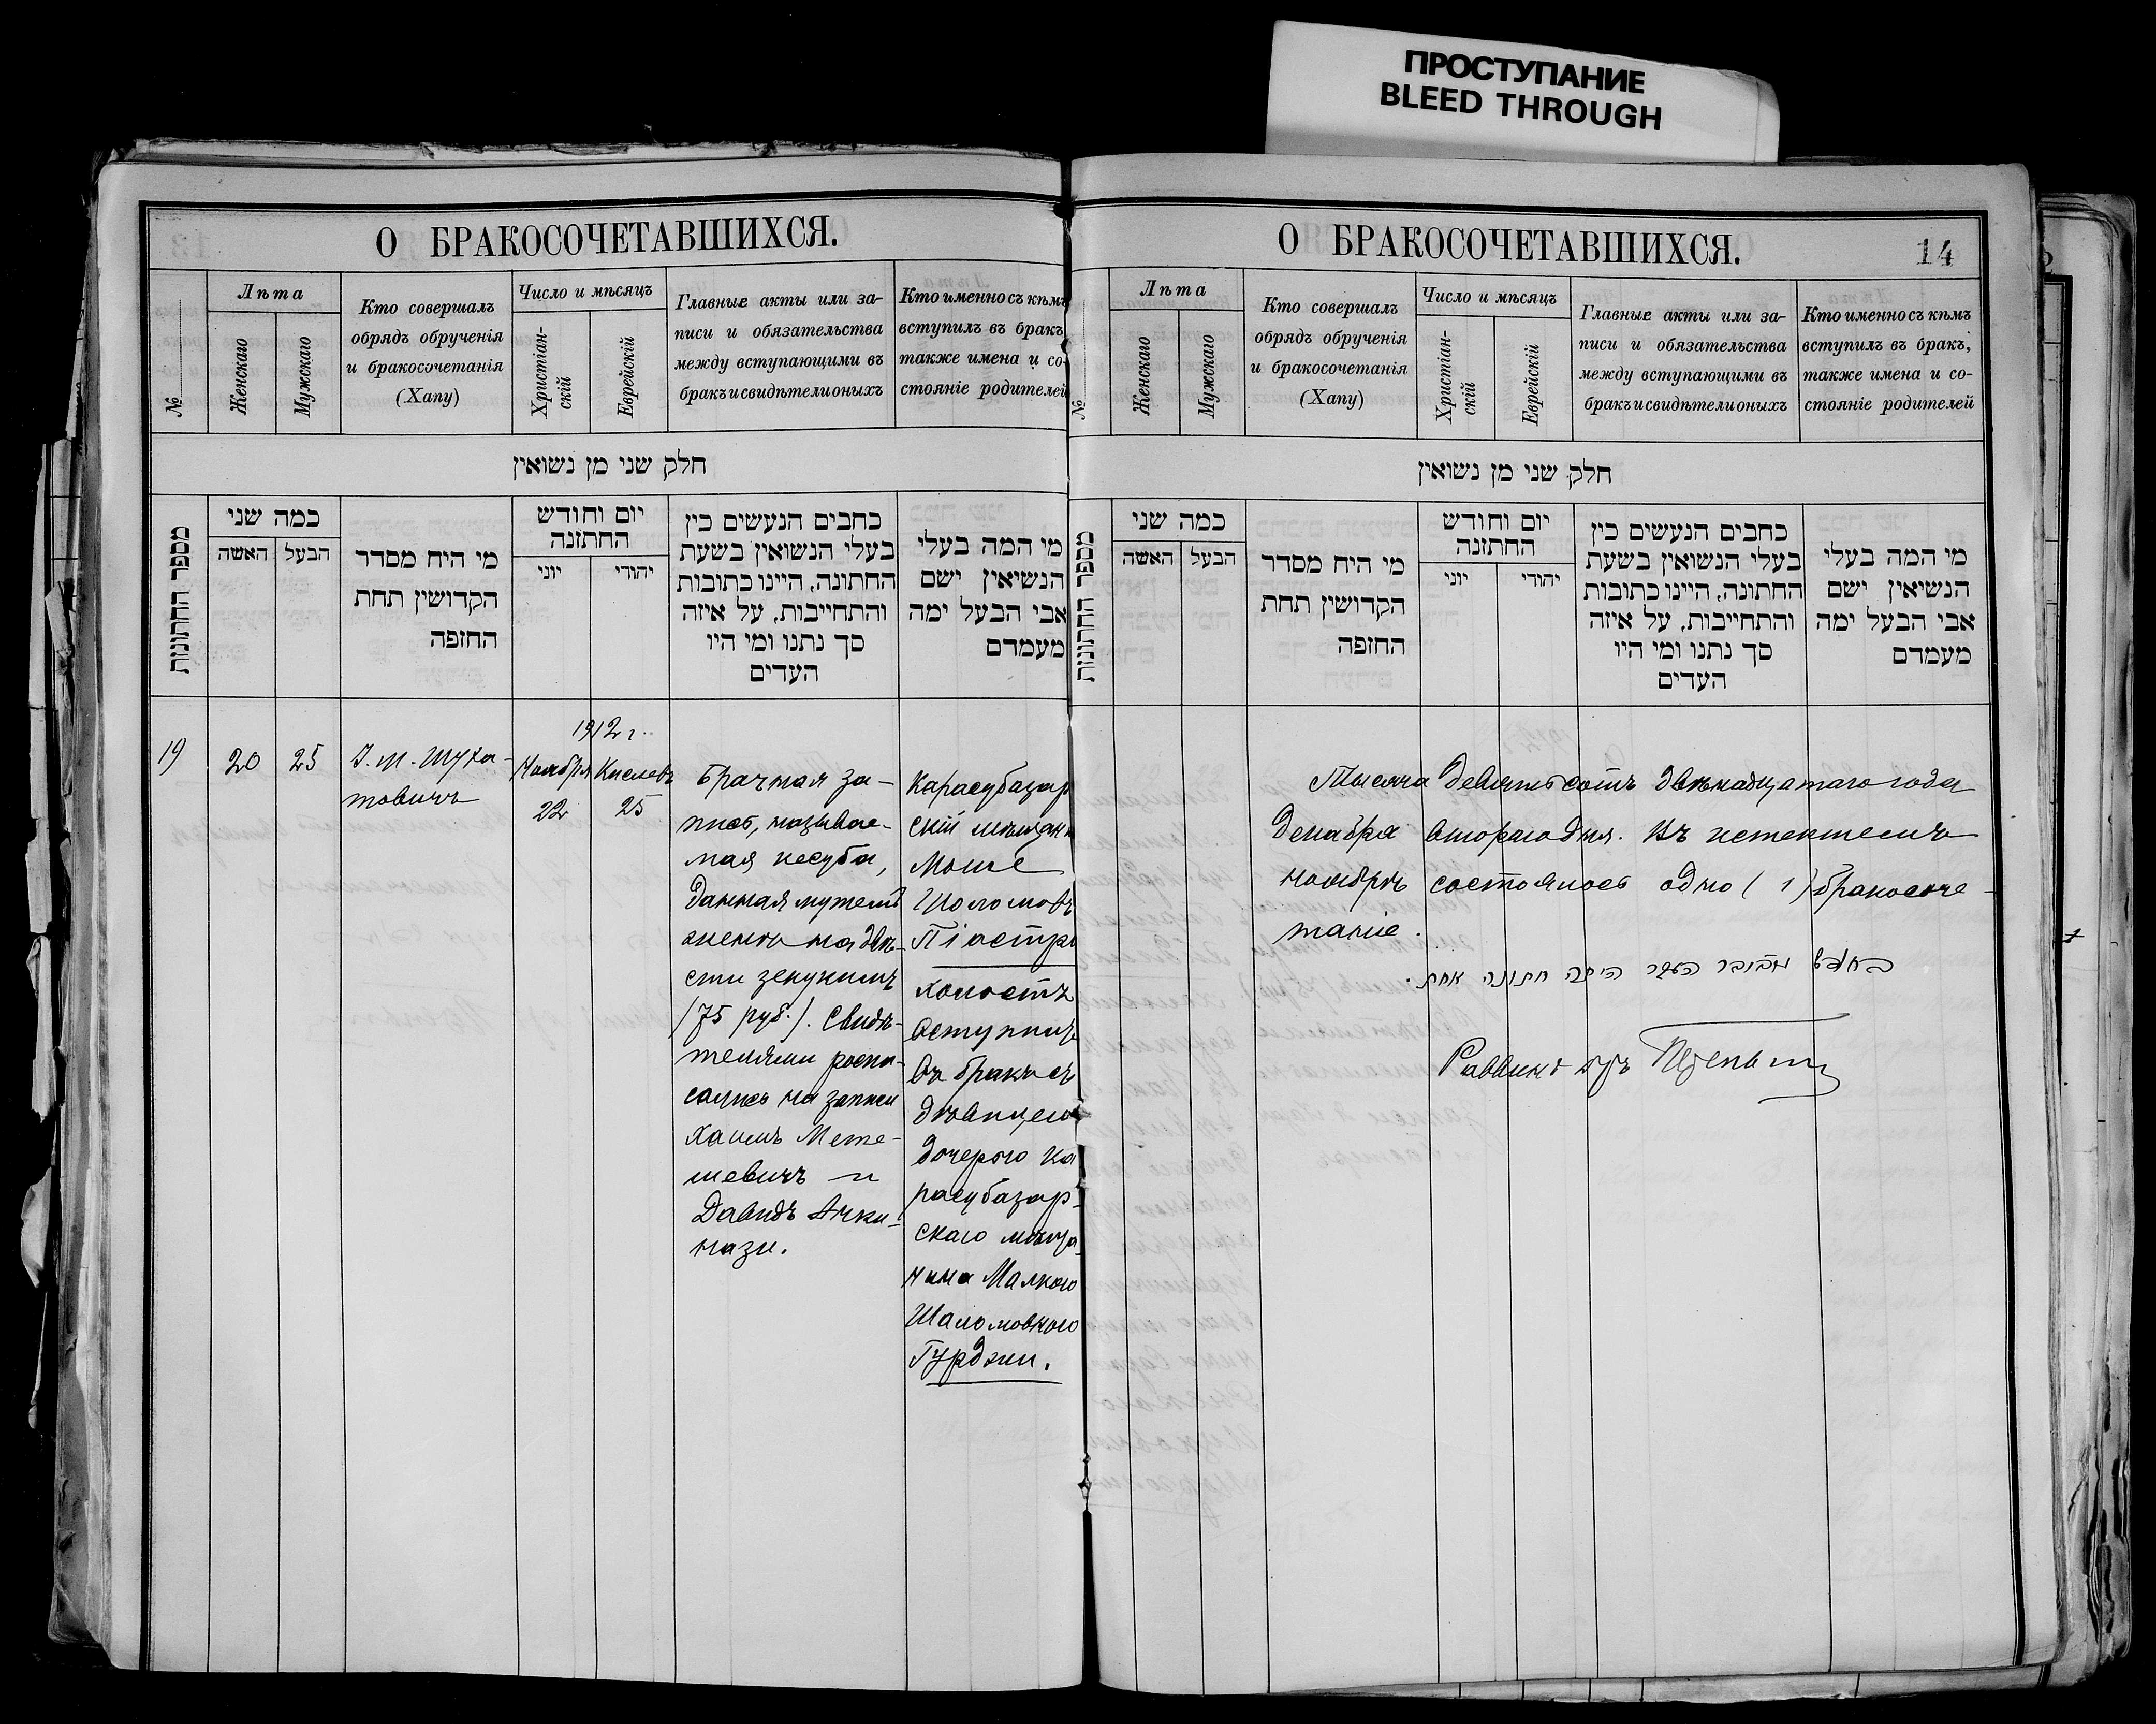 ПРОСТУПАНИЕ
BLEED THROUGH
О БРАКОСОЧЕТАВШИХСЯ.
№
Лѣта
Женскаго
Мужскаго
Кто совершалъ
обрядъ обрученія
и бракосочетанія
(Хапу)
Число и мѣсяцъ
Христіан-
скій
Еврейскій
Главные акты или за-
писи и обязательства
между вступающими въ
бракъ и свидѣтели оныхъ
Кто именно съ кѣмъ
вступилъ въ бракъ,
также имена и со-
стояніе родителей
חלק שני מן נשואין
מספר החתונות
כמה שני
האשה
הבעל
מי היח מסדר
הקדושין תחת
החזפה
יום וחודש
החתזנה
יוני
יהודי
כחבים הנעשים כין
בעלי הנשואין בשעת
החתונה, היינו כתובות
והתחייבות, על איזה
סך נתנו ומי היו
העדים
מי המה בעלי
הנשיאין ישם
אבי הבעל ימה
מעמדם
19
20
25
І. М. Шуха-
товичъ
1912 г.
Ноября
22
Кислевъ
25
Брачная за-
пись, называе-
мая кесуба,
данная мужемъ
женѣ на двѣ-
сти зекукимъ
(75 руб.). Свидѣ-
телями роспи-
сались на записи
Хаимъ Меше-
шевичъ и
Давидъ Ачки-
нази.
Карасубазар
скій мѣщани
Моше
Шоломовъ
Піастръ
холостъ
вступилъ
въ бракъ съ
дѣвицею
дочерью Ка
расубазар-
скаго мѣща-
нина Малкою
Шаломовною
Гурджи.
О БРАКОСОЧЕТАВШИХСЯ.
14
№
Лѣта
Женскаго
Мужскаго
Кто совершалъ
обрядъ обрученія
и бракосочетанія
(Хапу)
Число и мѣсяцъ
Христіан-
скій
Еврейскій
Главные акты или за-
писи и обязательства
между вступающими въ
бракъ и свидѣтели оныхъ
Кто именно съ кѣмъ
вступилъ въ бракъ,
также имена и со-
стояніе родителей
חלק שני מן נשואין
מספר החתונות
כמה שני
האשה
הבעל
מי היח מסדר
הקדושין תחת
החזפה
יום וחודש
החתזנה
יוני
יהודי
כחבים הנעשים כין
בעלי הנשואין בשעת
החתונה, היינו כתובות
והתחייבות, על איזה
סך נתנו ומי היו
העדים
מי המה בעלי
הנשיאין ישם
אבי הבעל ימה
מעמדם
Тысяча девятьсотъ двѣнадцатаго года
декабря второго дня. Въ истекшемъ
ноябрѣ состоялось одно (1) бракосоче-
таніе.
העבר היתה חתונה אחת.
Раввинъ